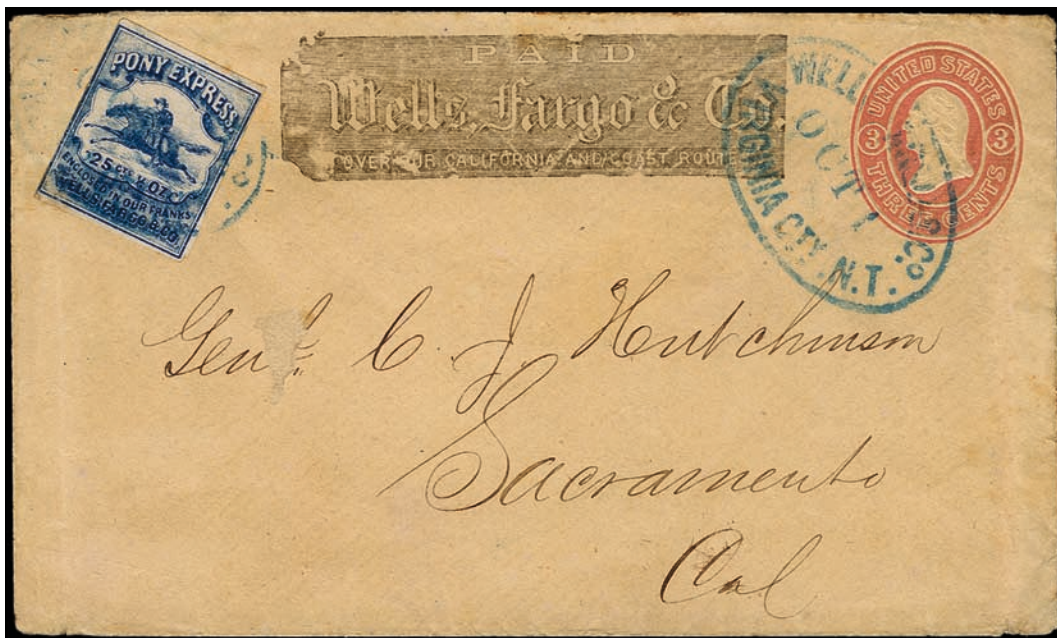 PONY EXPRESS.
25 CTS. ½ OZ.
ENCLOSED IN OUR FRANKS
WELLS, FARGO & CO.
PAID
Wells, Fargo & Co.
OVER OUR CALIFORNIA AND COAST ROUTES
WELLS, FARGO & Co.
OCT 7
VIRGINIA CTY. N.T.
UNITED STATES
3 3
THREE CENTS
Genl. C J Hutchinson
Sacramento
Cal